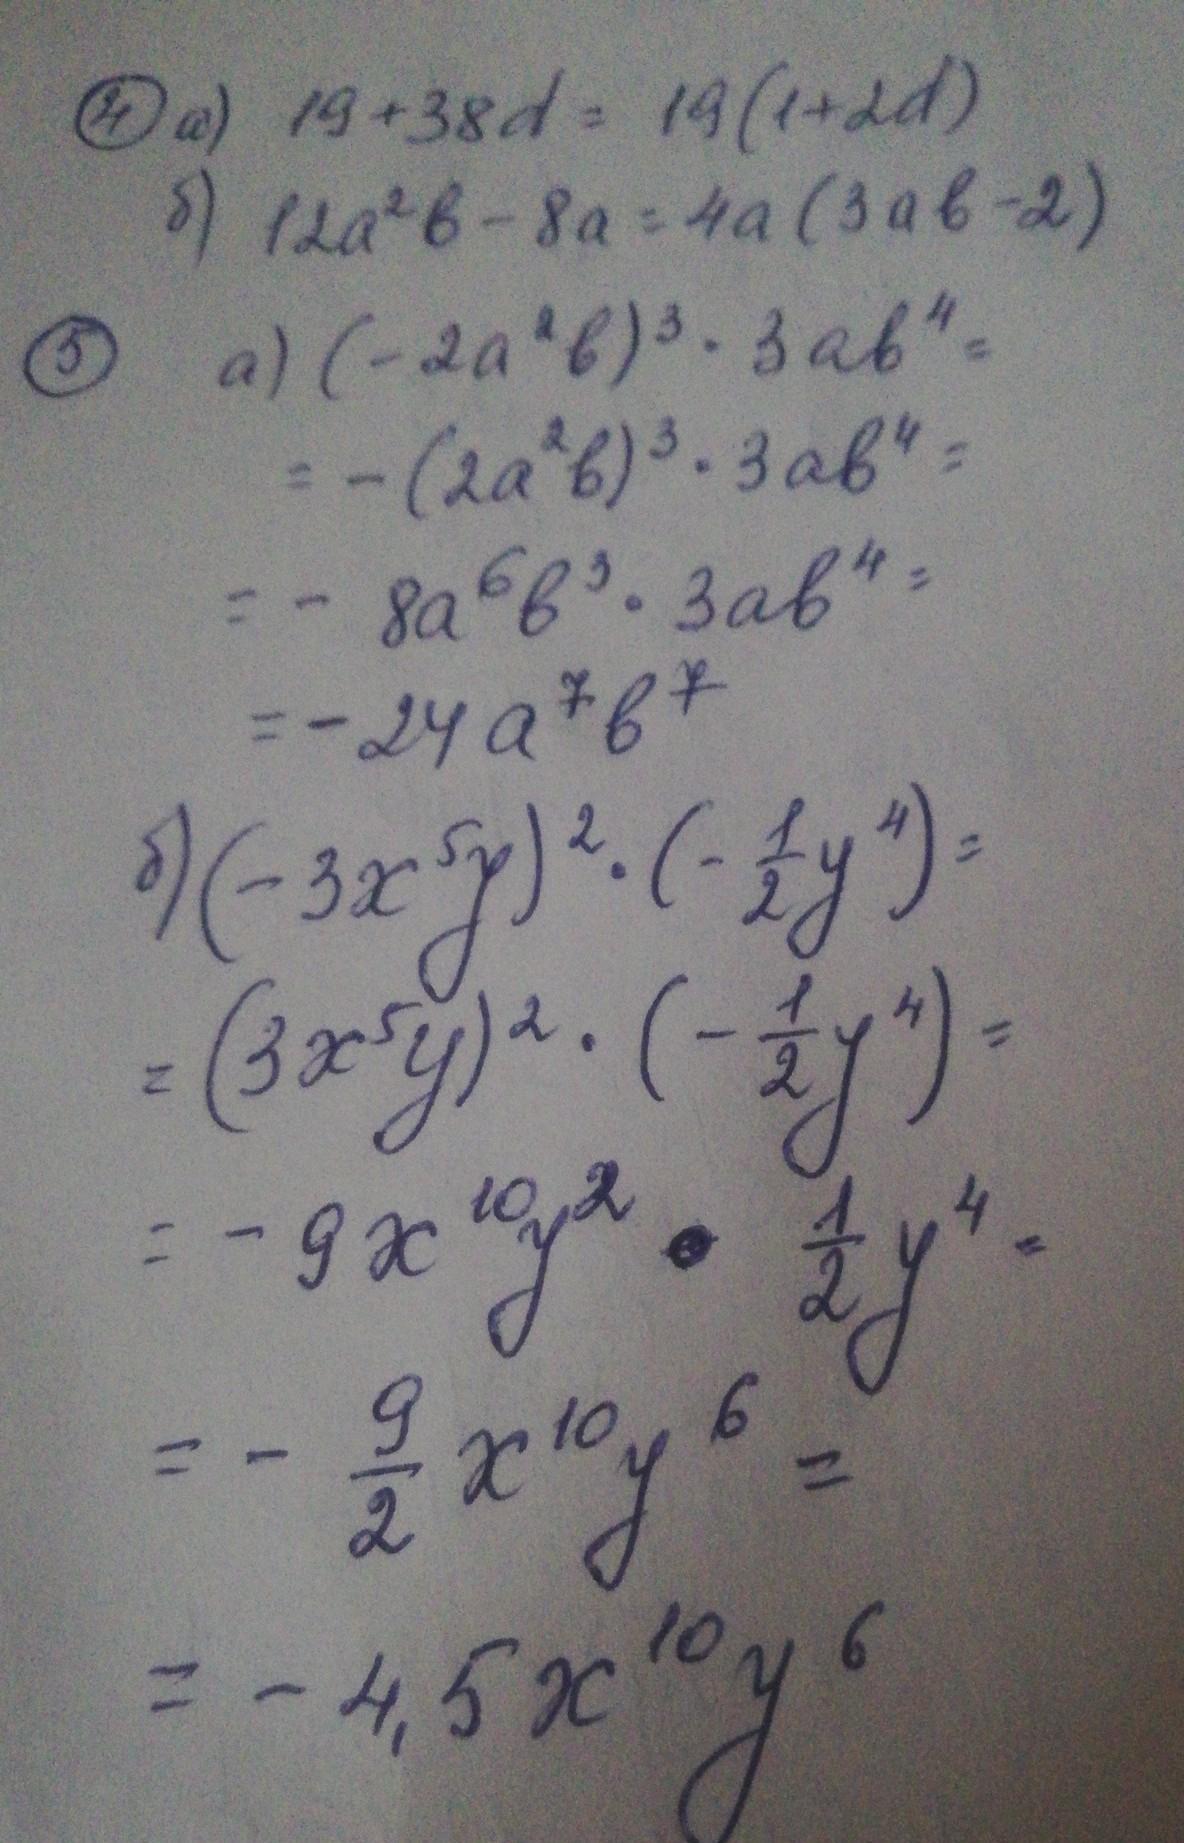 ④ а) 19+38d = 19(1+2d)
б) 12a²b - 8a = 4a(3ab-2)
⑤ а) (-2a²b)³ · 3ab⁴ =
= -(2a²b)³ · 3ab⁴ =
= - 8a⁶b³ · 3ab⁴ =
= - 24a⁷b⁷
б) (-3x⁵y)² · (-1/2y⁴) =
= (3x⁵y)² · (-1/2y⁴) =
= - 9x¹⁰y² · 1/2y⁴ =
= - 9/2x¹⁰y⁶ =
= - 4,5x¹⁰y⁶